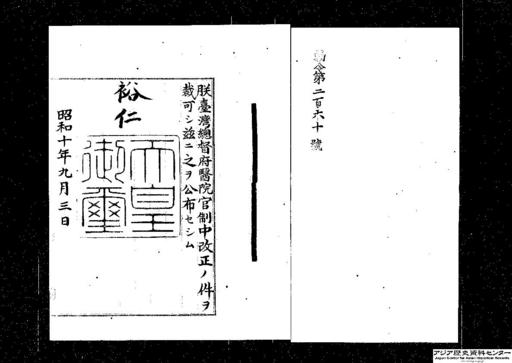 勅令第二百六十號
朕臺灣總督府醫院官制中改正ノ件ヲ
裁可シ茲ニ之ヲ公布セシム
裕仁
天皇
御璽
昭和十年九月三日
アジア歴史資料センター
Japan Center for Asian Historical Records